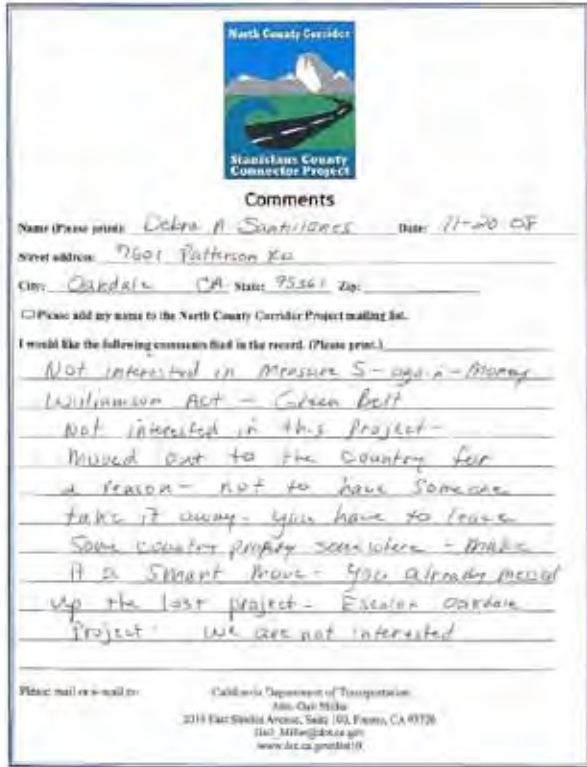 North County Corridor
Stanislaus County
Connector Project
Comments
Name (Please print): Debra A Date: 11-20 08
Street address: 7601 Patterson Rd
City: Oakdale CA State: 95361 Zip:
Please add my name to the North County Corridor Project mailing list.
I would like the following comments filed in the record. (Please print.)
Not interested in Measure S - again - Money
Williamson Act - Green Belt
Not interested in this Project -
Moved out to the Country for
a reason - not to have Someone
take it away - you have to leave
Some country somewhere - Make
it a Smart Move - You already messed
up the last project - Escalon Oakdale
Project - We are not interested
Please mail or e-mail to:
California Department of Transportation
Attn: Gail Miller
2015 East Shields Avenue, Suite 100, Fresno, CA 93726
Gail_Miller@dot.ca.gov